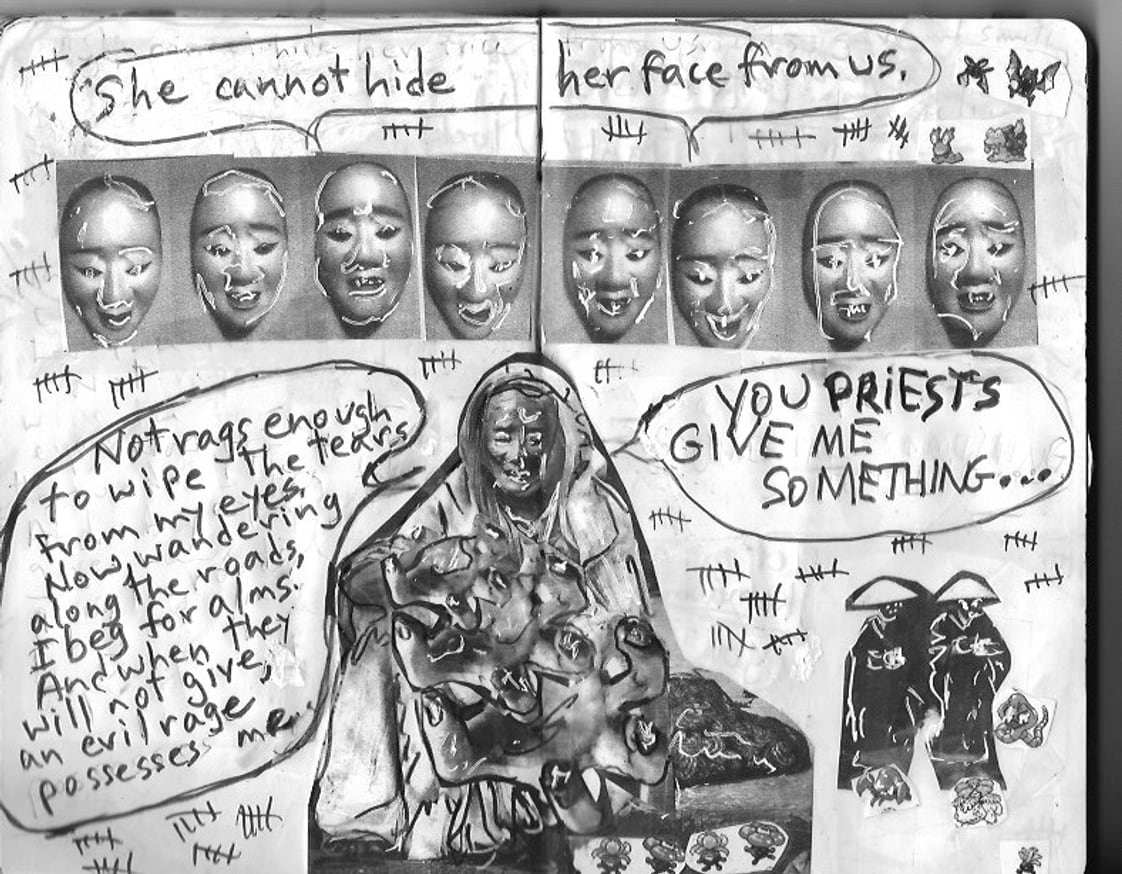 She cannot hide her face from us.
Not rags enough
to wipe the tears
from my eyes.
Now wandering
along the roads,
I beg for alms.
And when they
will not give,
an evil rage
possesses me
YOU PRIESTS
GIVE ME
SOMETHING....